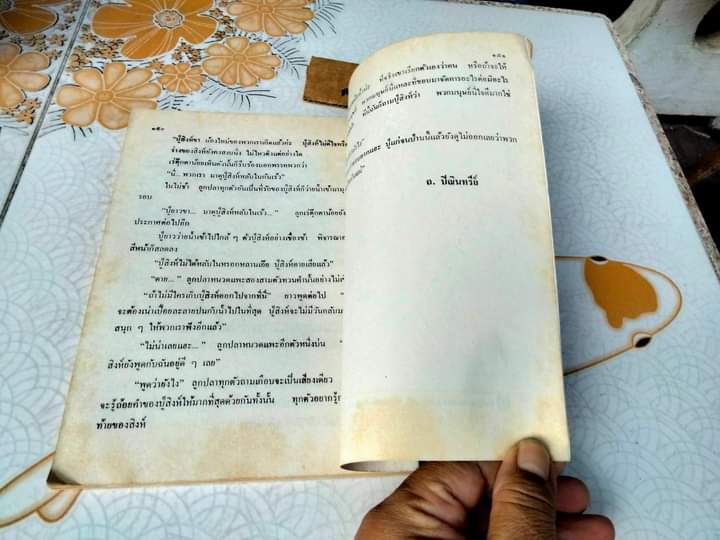 ๑๕๐
"ปู่สิงห์ขา เมืองใหม่ของพวกลานเกิดแล้วค่ะ ปู่สิงห์ไม่ดีใจหรือ
ร่างของสิงห์ยังคงสงบนิ่ง ไม่ไหวติงแต่อย่างใด
เจ้าตุ๊กตาน้อยเห็นดังนั้นก็รีบร้องบอกพรรคพวกว่า
"นี่... พวกเรา มาดูปู่สิงห์หลับในกันเร้ว"
ในไม่ช้า ลูกปลาทุกตัวอันเป็นที่รักของปู่สิงห์ก็ว่ายน้ำเข้ามา
รอบ
"ปู่ยาวขา... มาดูปู่สิงห์หลับในเร้ว..." ลูกเจ้าตุ๊กตาน้อยยัง
ประกาศต่อไปอีก
ปู่ยาวว่ายน้ำเข้าไปใกล้ ๆ ตัวปู่สิงห์อย่างเชื่องช้า พิจารณา
สีหน้าก็สลดลง
"ปู่สิงห์ไม่ได้หลับในหรอกหลานเอ๊ย ปู่สิงห์ตายเสียแล้ว"
"ตาย..." ลูกปลาหนวดแพะสองสามตัวทวนคำนั้นอย่างไม่
"ถ้าไม่มีใครเก็บปู่สิงห์ออกไปจากที่นี่" ยาวพูดต่อไป "
จะต้องเน่าเปื่อยละลายปนกับน้ำไปในที่สุด ปู่สิงห์จะไม่มีวันกลับมา
สนุก ๆ ให้พวกเราฟังอีกแล้ว"
"ไม่น่าเลยแฮะ..." ลูกปลาหนวดแพะอีกตัวหนึ่งบ่น "
สิงห์ยังพูดกับฉันอยู่ดี ๆ เลย"
"พูดว่ายังไง" ลูกปลาทุกตัวถามเกือบจะเป็นเสียงเดียว
จะรู้ถ้อยคำของปู่สิงห์ให้มากที่สุดด้วยกันทั้งนั้น ทุกตัวอยากรู้
ท้ายของสิงห์
๑๕๑
ที่จริงเขาเรียกตัวเองว่าคน หรือถ้าจะให้
พวกมนุษย์นี่แหละที่ชอบมาจัดการอะไรต่อมิอะไร
ที่นี่มันก็ถามปู่สิงห์ว่า พวกมนุษย์นี่ใจดีมากใช่
ปู่ไม่ออกเลยว่าพวก
อ. ปัณินทรีย์